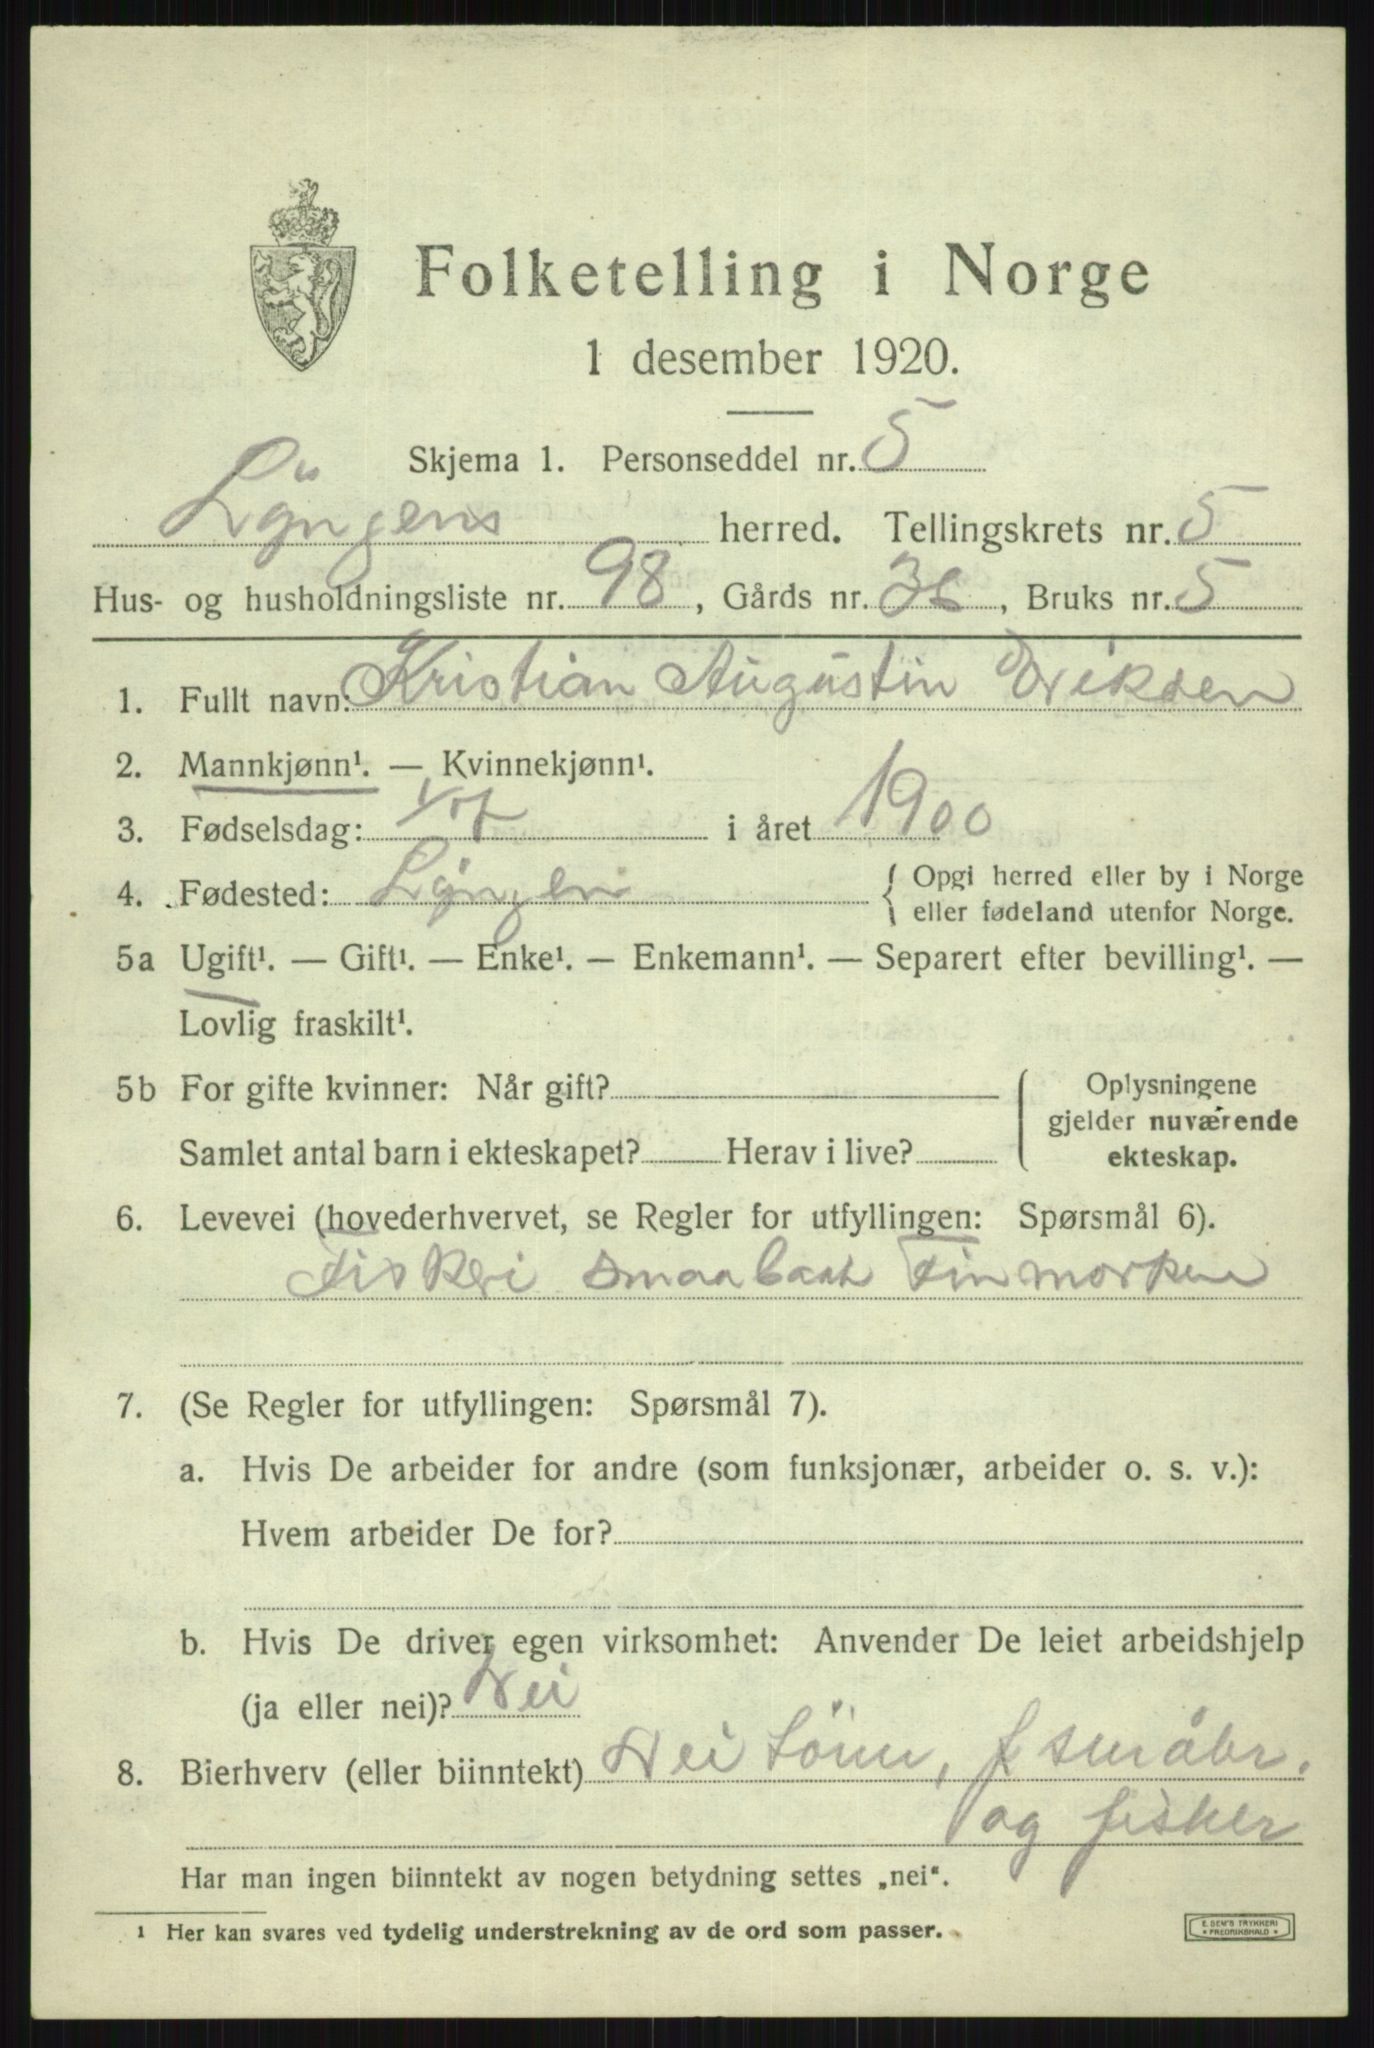 Folketelling i Norge
1 desember 1920.
Skjema 1. Personseddel nr. 5
Lÿngens herred. Tellingskrets nr. 5
Hus- og husholdningsliste nr. 98, Gårds nr. 36, Bruks nr. 5
1. Fullt navn: Kristian Augustin Eriksen
2. Mannkjønn¹. — Kvinnekjønn¹.
3. Fødselsdag: i året 1900
4. Fødested: Lÿngen { Opgi herred eller by i Norge
eller fødeland utenfor Norge.
5a Ugift¹. — Gift¹. — Enke¹. — Enkemann¹. — Separert efter bevilling¹. —
Lovlig fraskilt¹.
5b For gifte kvinner: Når gift? Oplysningene
gjelder nuværende
Samlet antal barn i ekteskapet? Herav i live? ekteskap.
6. Levevei (hovederhvervet, se Regler for utfyllingen: Spørsmål 6).
Fiskeri smaabaat Finmorken
7. (Se Regler for utfyllingen: Spørsmål 7).
a. Hvis De arbeider for andre (som funksjonær, arbeider o. s. v.):
Hvem arbeider De for?
b. Hvis De driver egen virksomhet: Anvender De leiet arbeidshjelp
(ja eller nei)? Nei
8. Bierhverv (eller biinntekt) Nei Sönn, f småbr.
og fisker
Har man ingen biinntekt av nogen betydning settes „nei“.
¹ Her kan svares ved tydelig understrekning av de ord som passer.
E. SEM'S TRYKKERI
* FREDRIKSHALD *